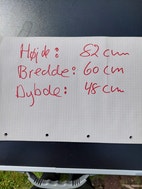 Højde: 82 cm
Bredde: 60 cm
Dybde: 48 cm